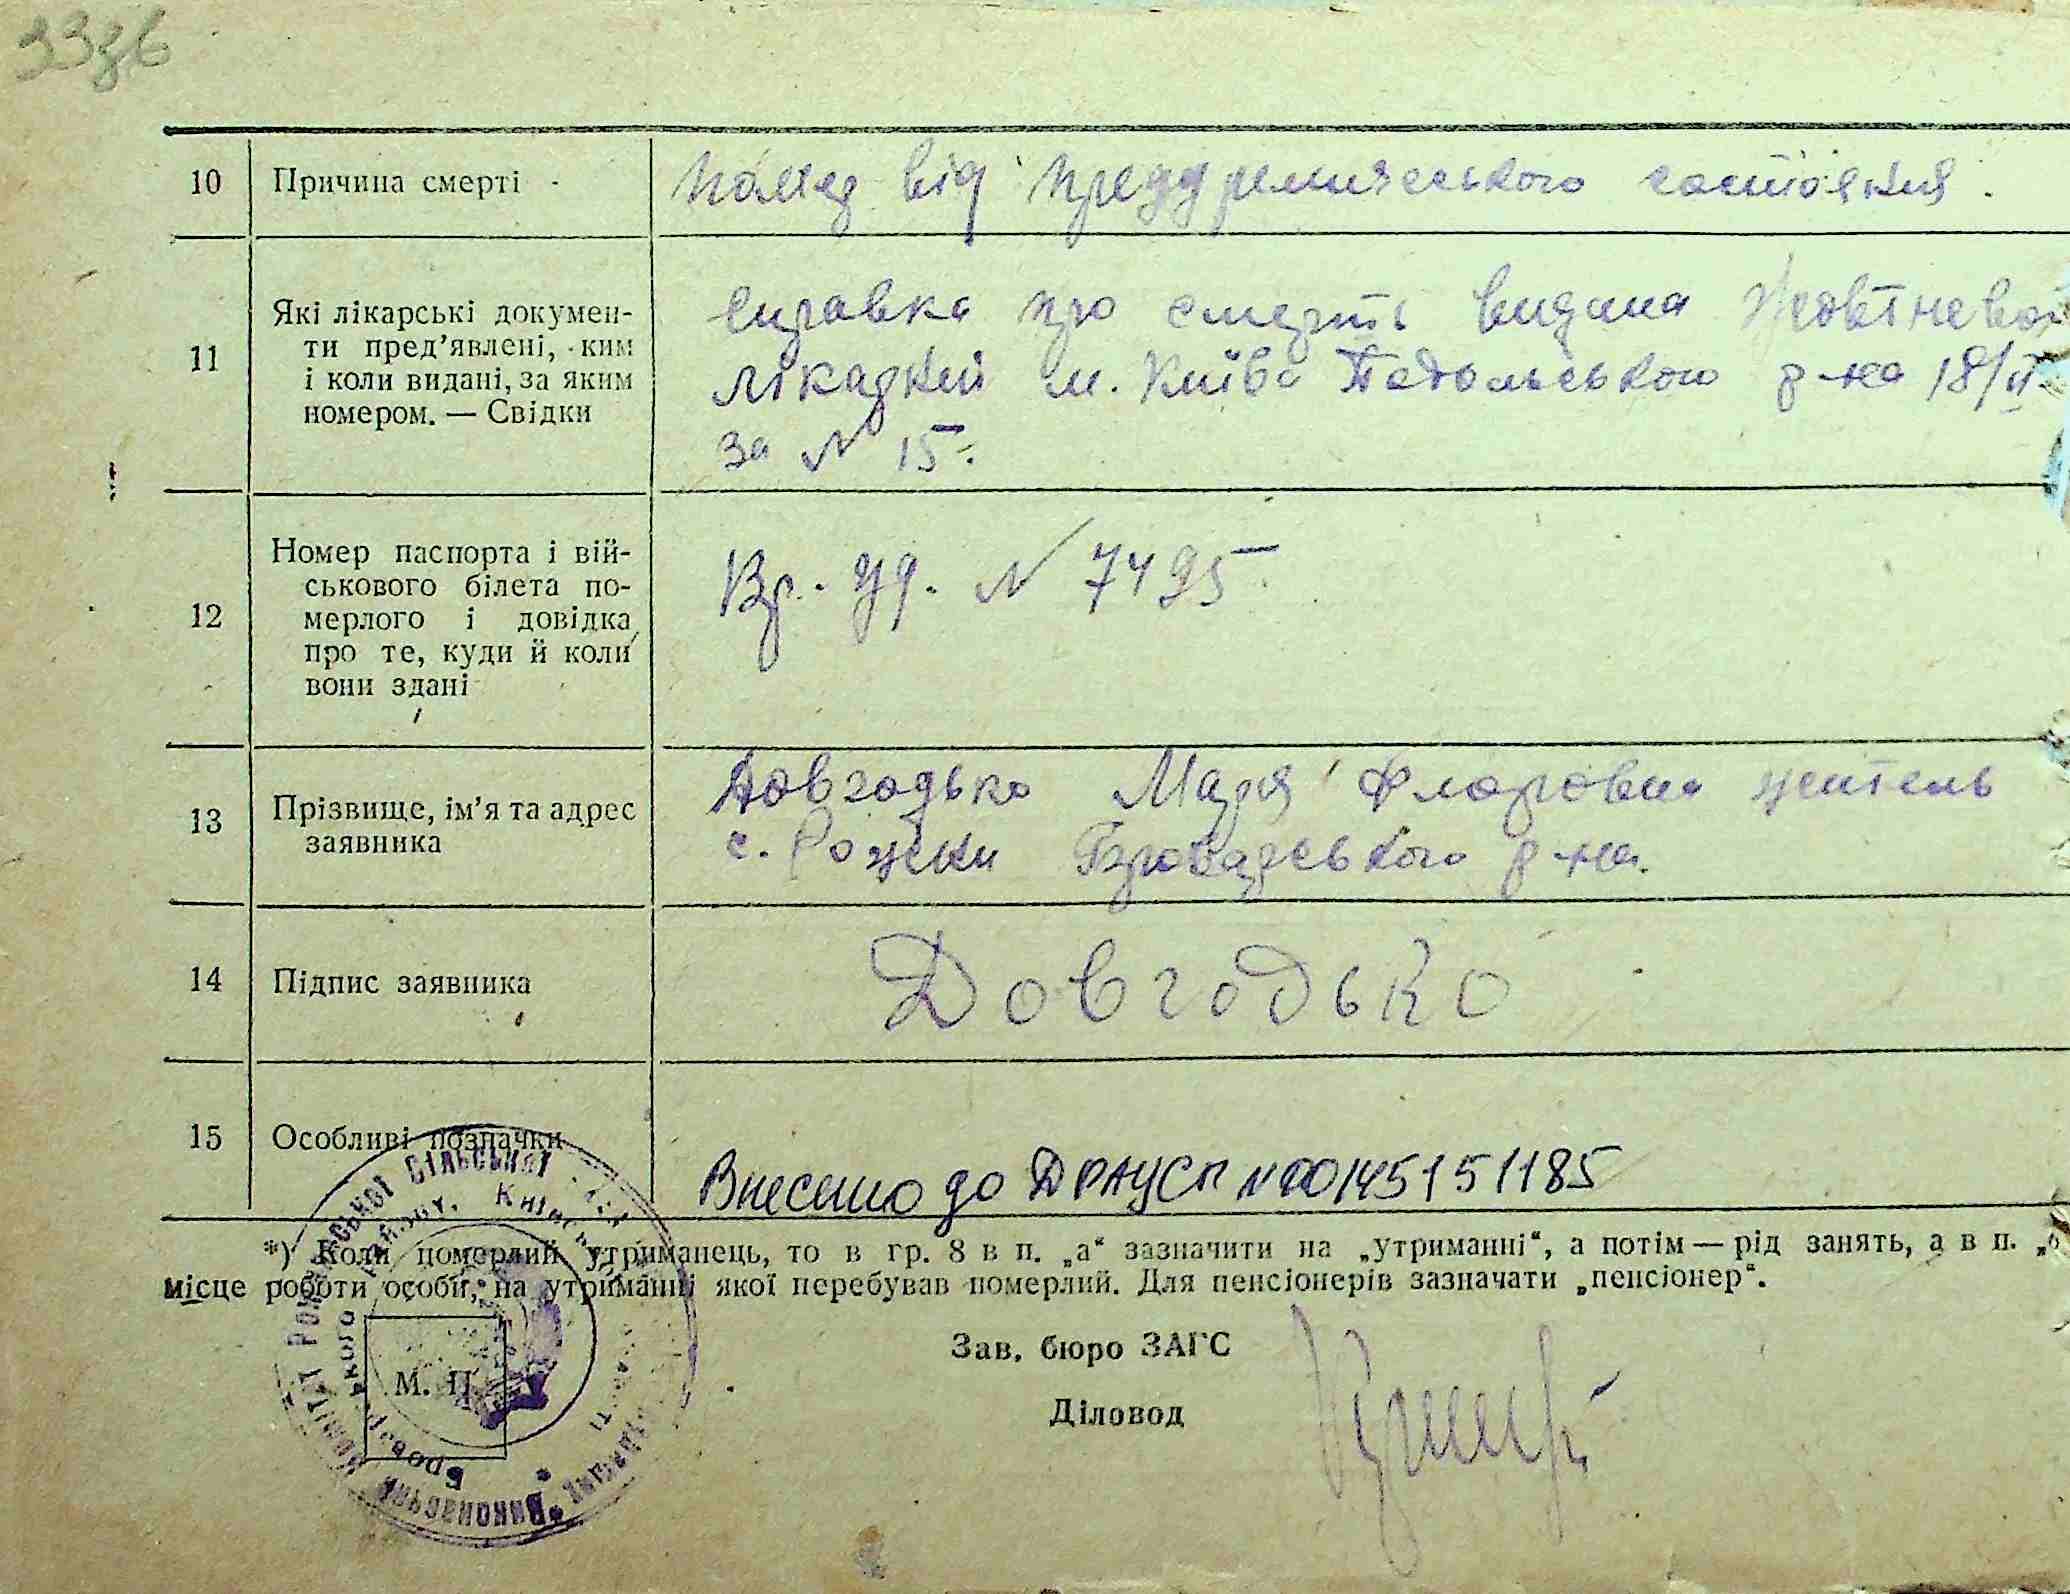 10 Причина смерті
помер від предуремичеського состояния.
11 Які лікарські докумен-
ти пред’явлені, ким
і коли видані, за яким
номером. — Свідки
Справка про смерть видана Жовтневой
лікаркий м. Київа Подольського р-на 18/II
за № 15.
12 Номер паспорта і вій-
ськового білета по-
мерлого і довідка
про те, куди й коли
вони здані
Вр. уд. № 7495
13 Прізвище, ім’я та адрес
заявника
Довгодько Марія Флоровна житель
с. Рожни Броварського р-на.
14 Підпис заявника
Довгодько
15 Особливі позначки
Внесено до ДРАЦСГ № 00145151185
*) Коли померлий утриманець, то в гр. 8 в п. „а“ зазначити на „утриманні“, а потім — рід занять, а в п. „б
місце роботи особи, на утриманні якої перебував померлий. Для пенсіонерів зазначати „пенсіонер“.
Зав. бюро ЗАГС
Діловод
М. П.